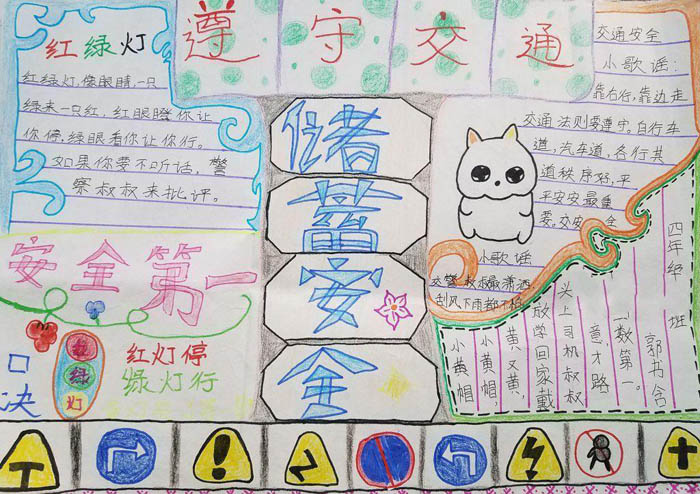 遵守交通
储蓄安全
红绿灯
红绿灯,像眼睛,一只
绿来一只红,红眼瞪你让
你停,绿眼看你让你行。
如果你要不听话,警
察叔叔来批评。
安全第一
口决
红
绿
灯
红灯停
绿灯行
交通安全
小歌谣:
靠右行,靠边走
交通法则要遵守。自行车
道,汽车道,各行其
道秩序好,平
平安安最重
要。交安全
小歌谣
交警叔叔最潇洒
刮风下雨都不怕
小黄帽,
小黄帽,
黄又黄,
放学回家戴
头上司机叔叔
意,才路
一数第一。
郭书含
四年级 班